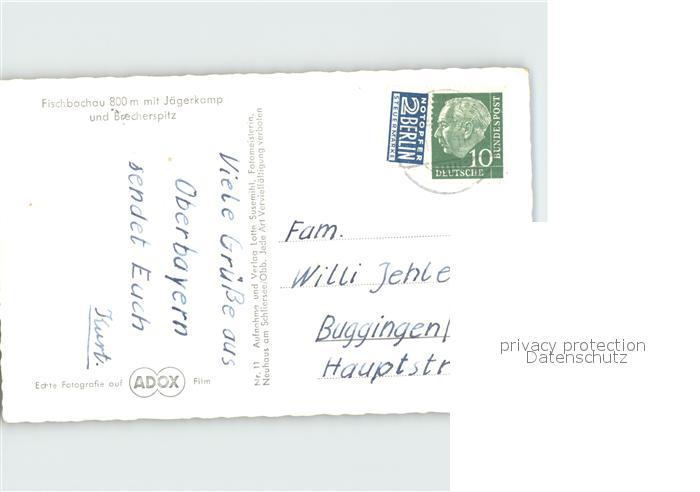 Fischbachau 800 m mit Jägerkamp
und Brecherspitz
Viele Grüße aus
Oberbayern
sendet Euch
Kurt.
Echte Fotografie auf ADOX Film
Nr. 11 Aufnahme und Verlag Lotte Susemihl, Fotomeisterin,
Neuhaus am Schliersee/Obb. Jede Art Vervielfältigung verboten
NOTOPFER
2 BERLIN
STEUERMARKE
10
DEUTSCHE
BUNDESPOST
Fam.
Willi Jehle
Buggingen/
Hauptstr
privacy protection
Datenschutz